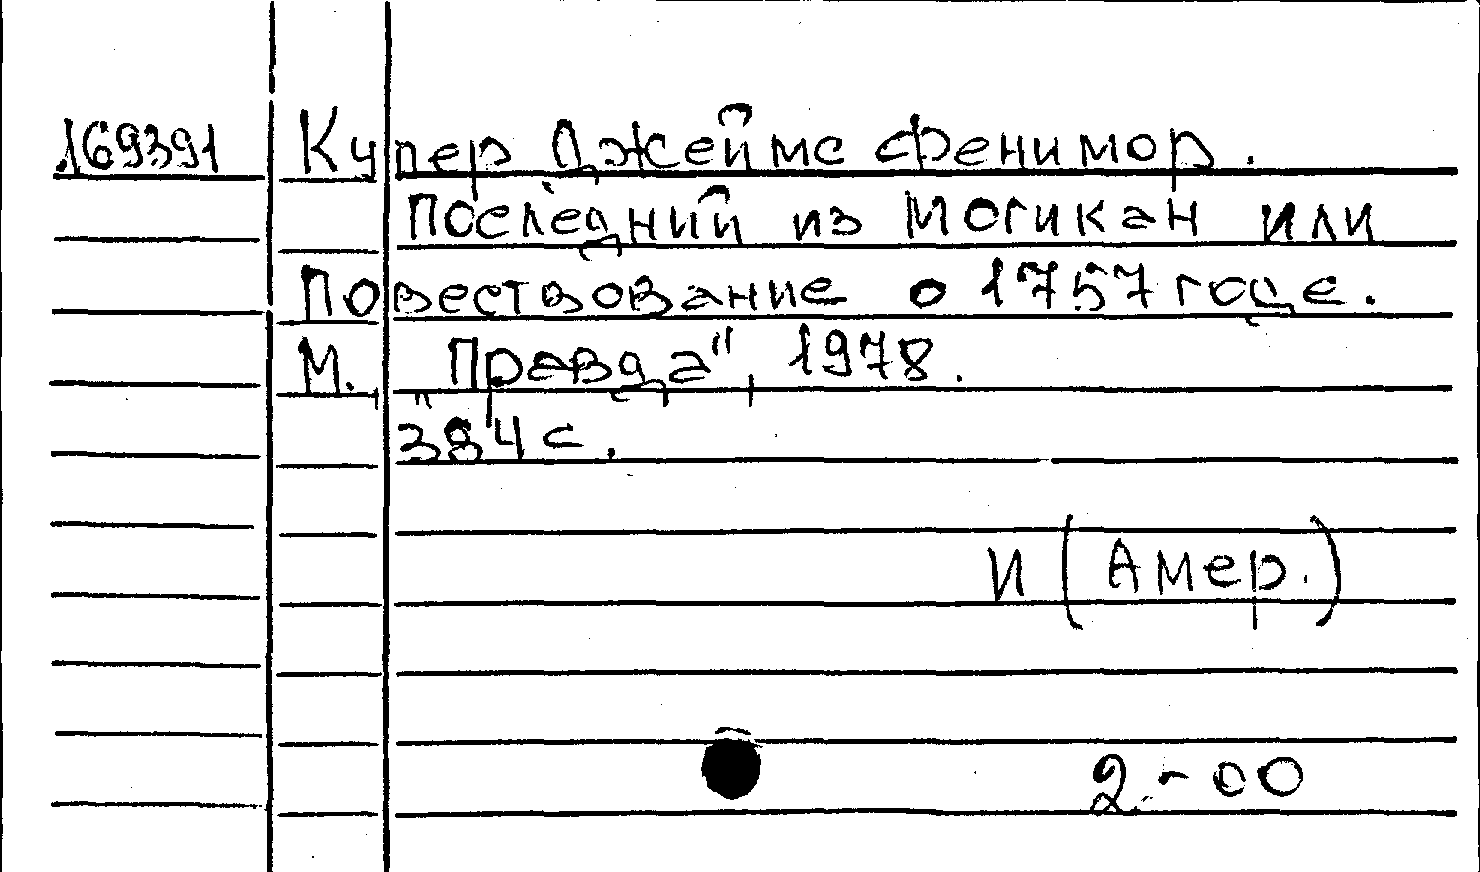 169391 Купер Джеймс Фенимор.
Последний из Могикан или
Повествование о 1757 годе.
М., "Правда", 1978.
384 с.
И (Амер.)
2-00